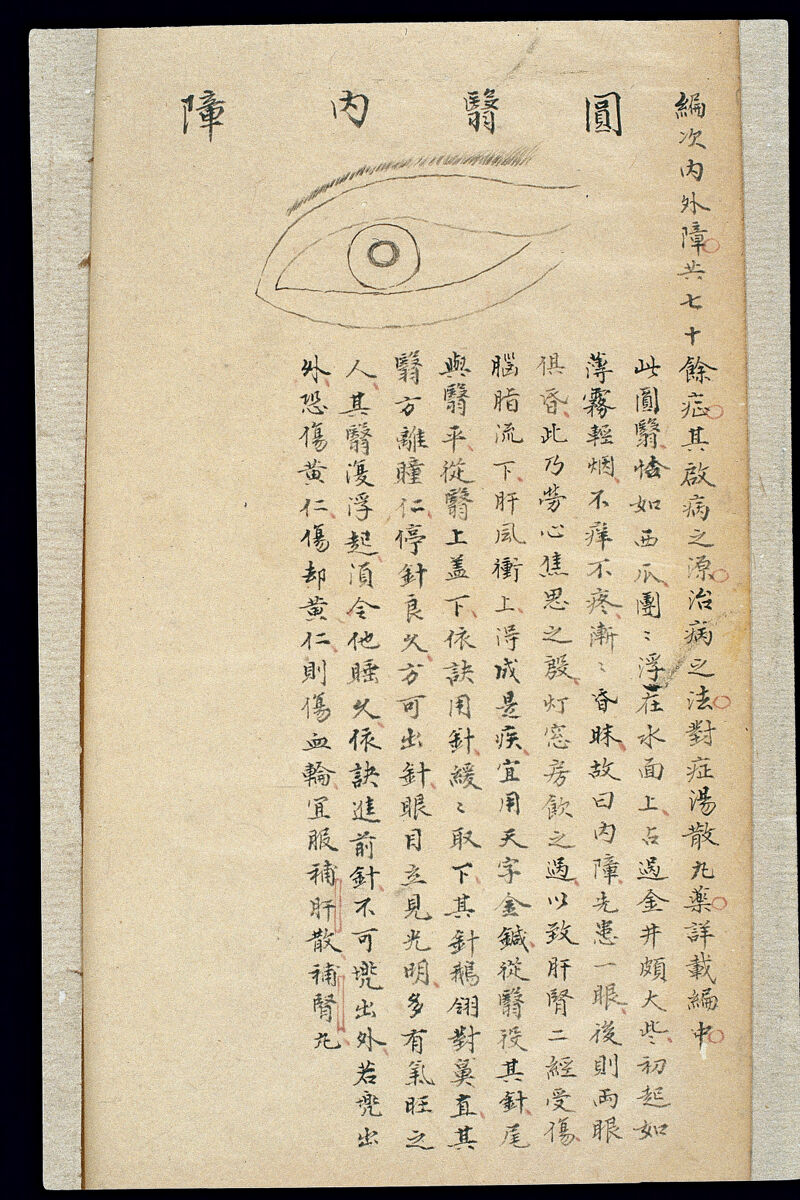 編次內外障共七十餘症其啟病之源治病之法對症湯散丸藥詳載編中
圓翳內障
此圓翳恰如西瓜團〻浮在水面上占過金井頗大些初起如
薄霧輕烟不痒不疼漸〻昏昧故曰內障先患一眼後則両眼
俱昏此乃勞心焦思之殷灯窓房飲之過以致肝腎二經受傷
腦脂流下肝風衝上得成是疾宜用天字金鍼從翳役其針尾
與翳平從翳上盖下依訣用針緩〻取下其針鵝翎對鼻直其
翳方離瞳仁停針良久方可出針眼目立見光明多有氣旺之
人其翳復浮起須令他睡久依訣進前針不可攪出外若攪出
外恐傷黄仁傷却黄仁則傷血輪宜服補肝散補腎丸